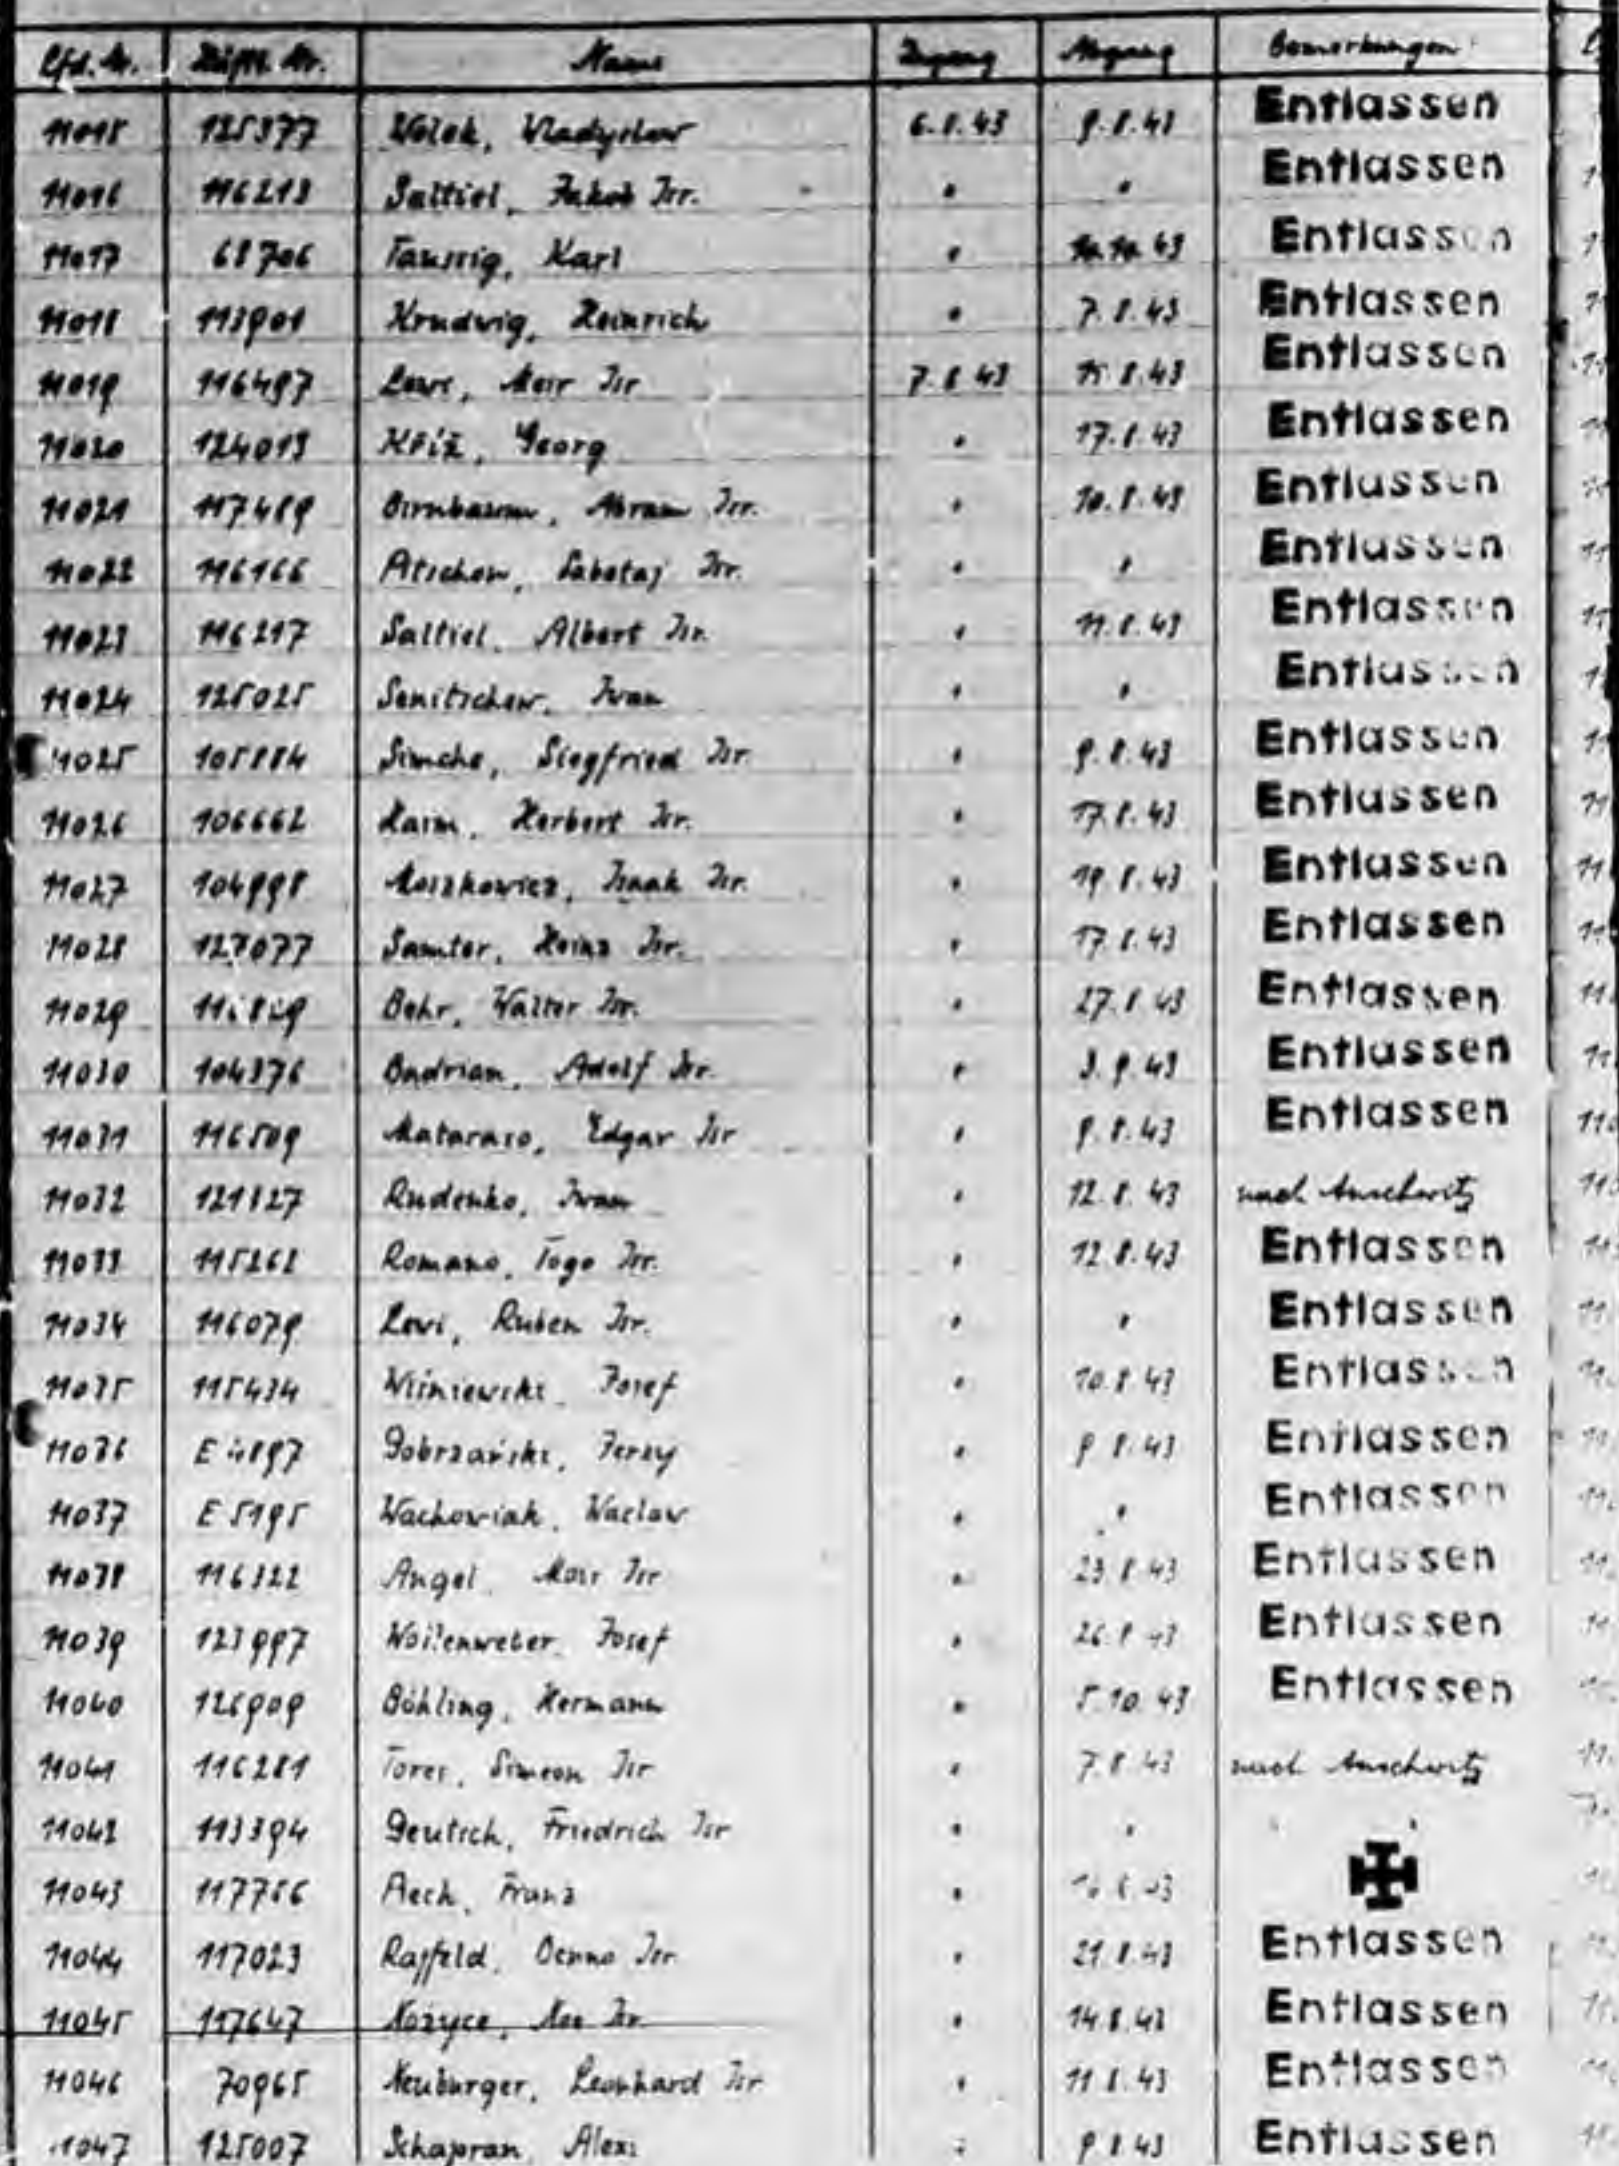 Lfd. Nr. Häftl. Nr. Name Zugang Abgang Bemerkungen
11015 125377 Wolek, Wladyslaw 6.8.43 9.8.43 Entlassen
11016 116213 Saltiel, Jakob Isr. " " Entlassen
11017 68706 Taussig, Karl " Entlassen
11018 113901 Krudwig, Heinrich " 7.8.43 Entlassen
11019 116497 Meir Isr 7.8.43 15.8.43 Entlassen
11020 124013 Kříž, Georg " 17.8.43 Entlassen
11021 117489 Birnbaum, Abram Isr. " 10.8.43 Entlassen
11022 116166 Sabetaj Isr. " " Entlassen
11023 116217 Saltiel, Albert Isr. " 11.8.43 Entlassen
11024 125025 Senitschew, Iwan " " Entlassen
11025 105884 Simche, Siegfried Isr. " 9.8.43 Entlassen
11026 106662 Haim, Herbert Isr. " 17.8.43 Entlassen
11027 104998 Moszkowicz, Isaak Isr. " 19.8.43 Entlassen
11028 127077 Samter, Heinz Isr. " 17.8.43 Entlassen
11029 Behr, Walter Isr. " 27.8.43 Entlassen
11030 104376 Badrian, Adolf Isr. " 3.9.43 Entlassen
11031 116509 Mataraso, Edgar Isr " 9.8.43 Entlassen
11032 121327 Rudenko, Iwan " 12.8.43 nach Auschwitz
11033 115262 Romano, Togo Isr. " 12.8.43 Entlassen
11034 116079 Levi, Ruben Isr. " " Entlassen
11035 115434 Wiśniewski, Josef " 10.8.43 Entlassen
11036 Dobrzański, Jerzy " 9.8.43 Entlassen
11037 E 5195 Wachowiak, Waclaw " " Entlassen
11038 116322 Angel, Moir Isr " 23.8.43 Entlassen
11039 123997 Woilenweber, Josef " 26.8.43 Entlassen
11040 126909 Böhling, Hermann " 5.10.43 Entlassen
11041 116281 Tores, Simeon Isr " 7.8.43 nach Auschwitz
11042 113394 Deutsch, Friedrich Isr " " " "
11043 117756 Aech, Franz "
11044 117023 Rajfeld, Benno Isr " 21.8.43 Entlassen
11045 117647 Nozyce, Isr. " 14.8.43 Entlassen
11046 70965 Neuburger, Leonhard Isr " 11.8.43 Entlassen
11047 125007 Schapran, Alexi " 9.8.43 Entlassen